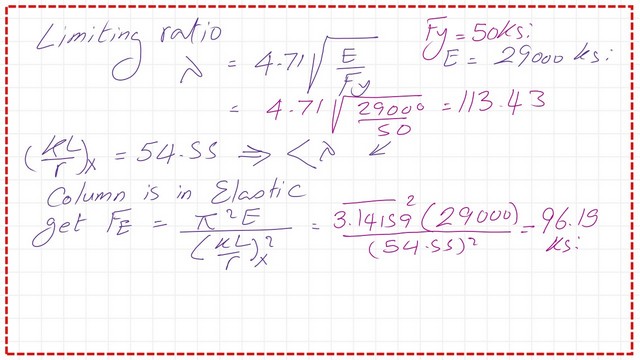 Limiting ratio
Fy = 50 ksi
λ = 4.71 √(E/Fy)
E = 29000 ksi
= 4.71 √(29000/50) = 113.43
(KL/r)x = 54.55 ⇒ < λ ↙
Column is in Elastic
get FE = π²E/(KL/r)²x = 3.14159²(29000)/(54.55)² = 96.19 ksi